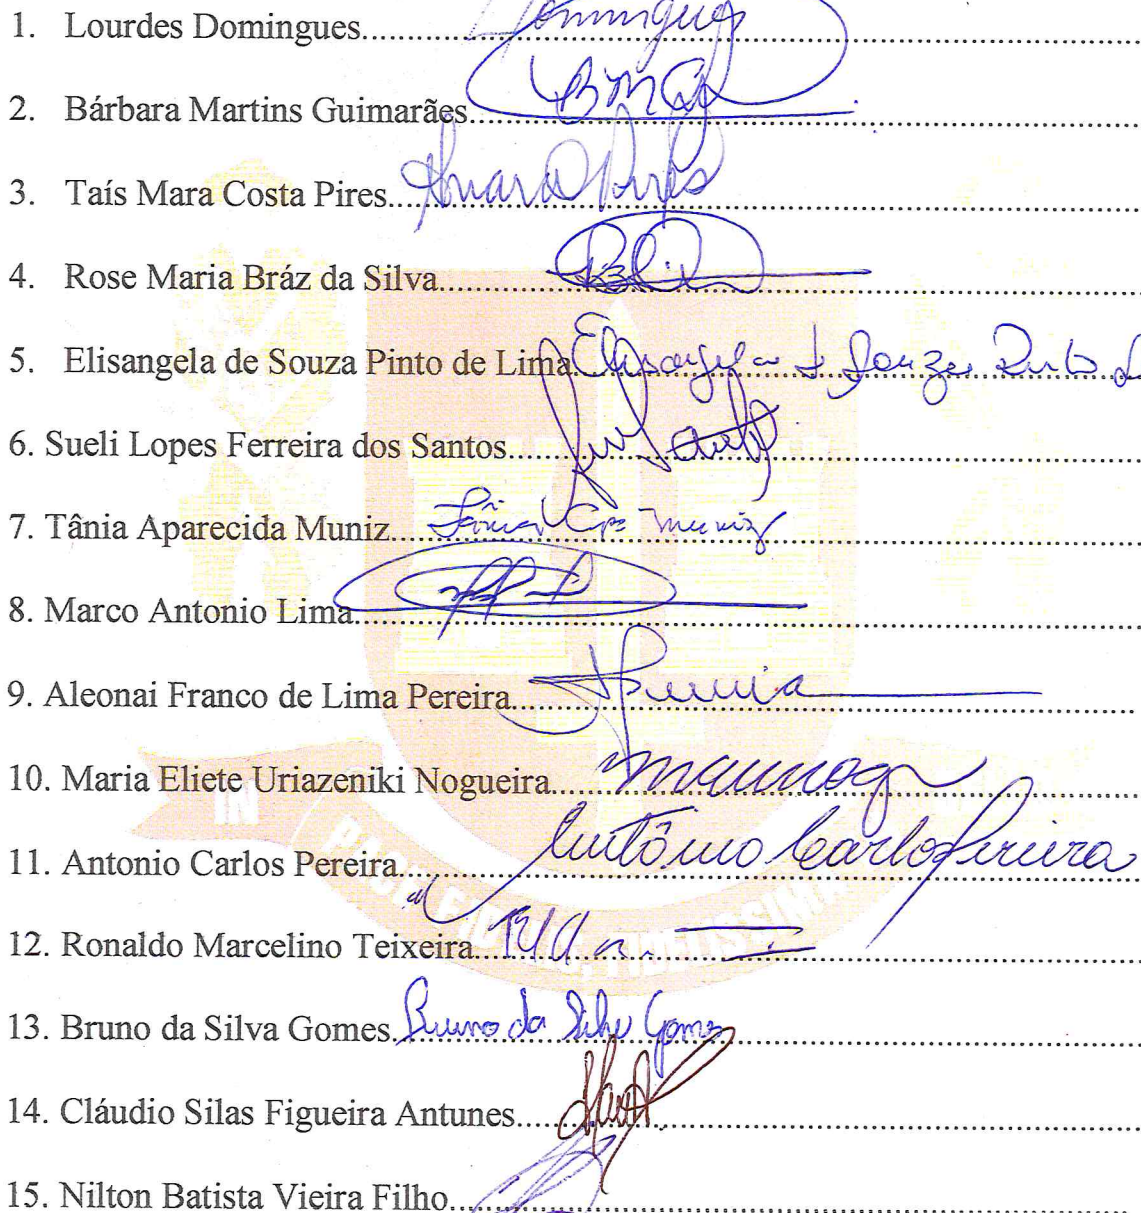 1. Lourdes Domingues.......... Domingues
2. Bárbara Martins Guimarães.......... BMG
3. Taís Mara Costa Pires.......... Pires
4. Rose Maria Bráz da Silva..........
5. Elisangela de Souza Pinto de Lima. Elisangela de Souza Pinto
6. Sueli Lopes Ferreira dos Santos..........
7. Tânia Aparecida Muniz.......... Tânia Apa Muniz
8. Marco Antonio Lima..........
9. Aleonai Franco de Lima Pereira..........
10. Maria Eliete Uriazeniki Nogueira..........
11. Antonio Carlos Pereira.......... Antônio Carlos Pereira
12. Ronaldo Marcelino Teixeira..........
13. Bruno da Silva Gomes. Bruno da Silva Gomes
14. Cláudio Silas Figueira Antunes..........
15. Nilton Batista Vieira Filho..........